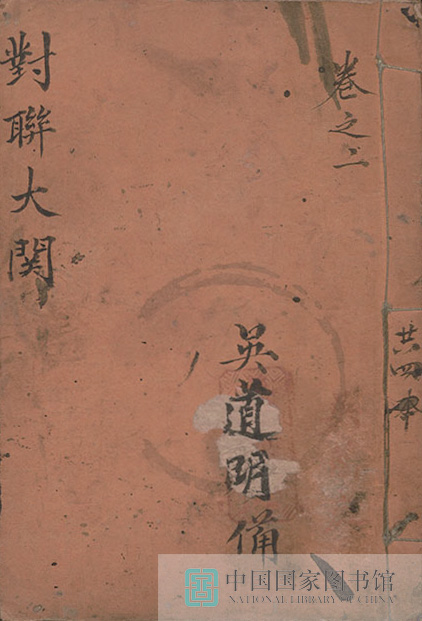 對聯大関
卷之二
吴道明備
共四本
中国国家图书馆
NATIONAL LIBRARY OF CHINA